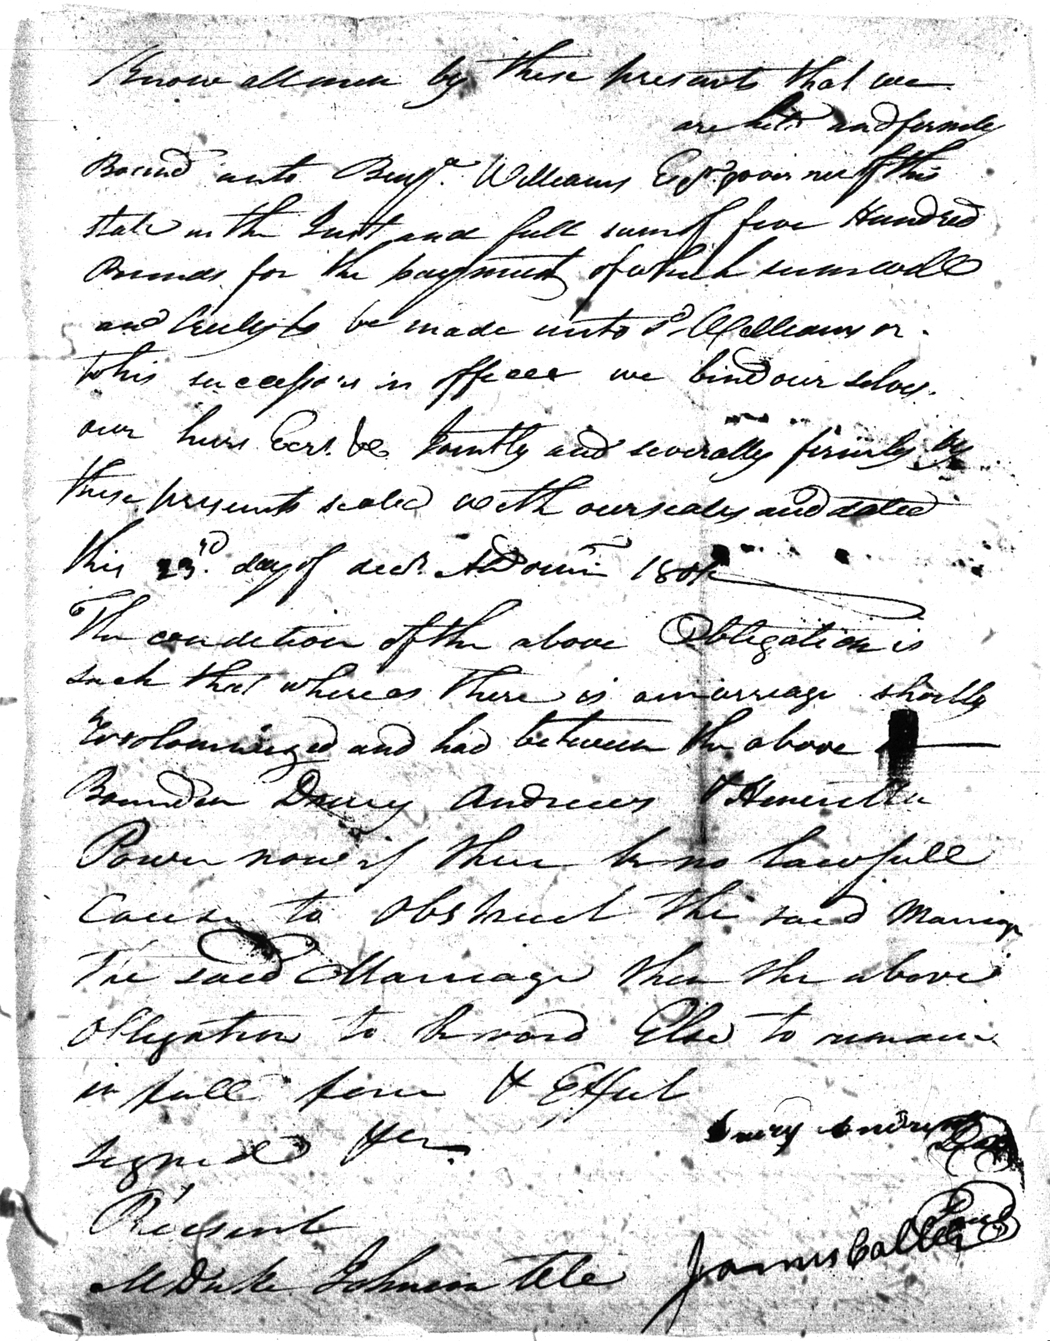 Know all men by these presents that we
are held and firmly
Bound unto Benjª. Williams Esqr. governer of this
state in the Just and full sum of five Hundred
Pounds for the payment of which sum well
and truly to be made unto sd. Williams or
to his successors in office we bind our selves
our heirs Exrs. &c Jointly and severally firmly by
these presents sealed with our seales and dated
this 23rd. day of decr. AD
The condition of the above Obligation is
such that whereas there is a marreage shortly
to solominized and had between the above
Bounden Drury Andrews & Henrietta
Power now if there be no lawfull
Cause to obstruct the said Marriage
The said Marriage then the above
obligation to be void Else to remain
in full force & Effect
signed &c
Present
M Duke Johnson
Drury Andrews Seal
James Seal